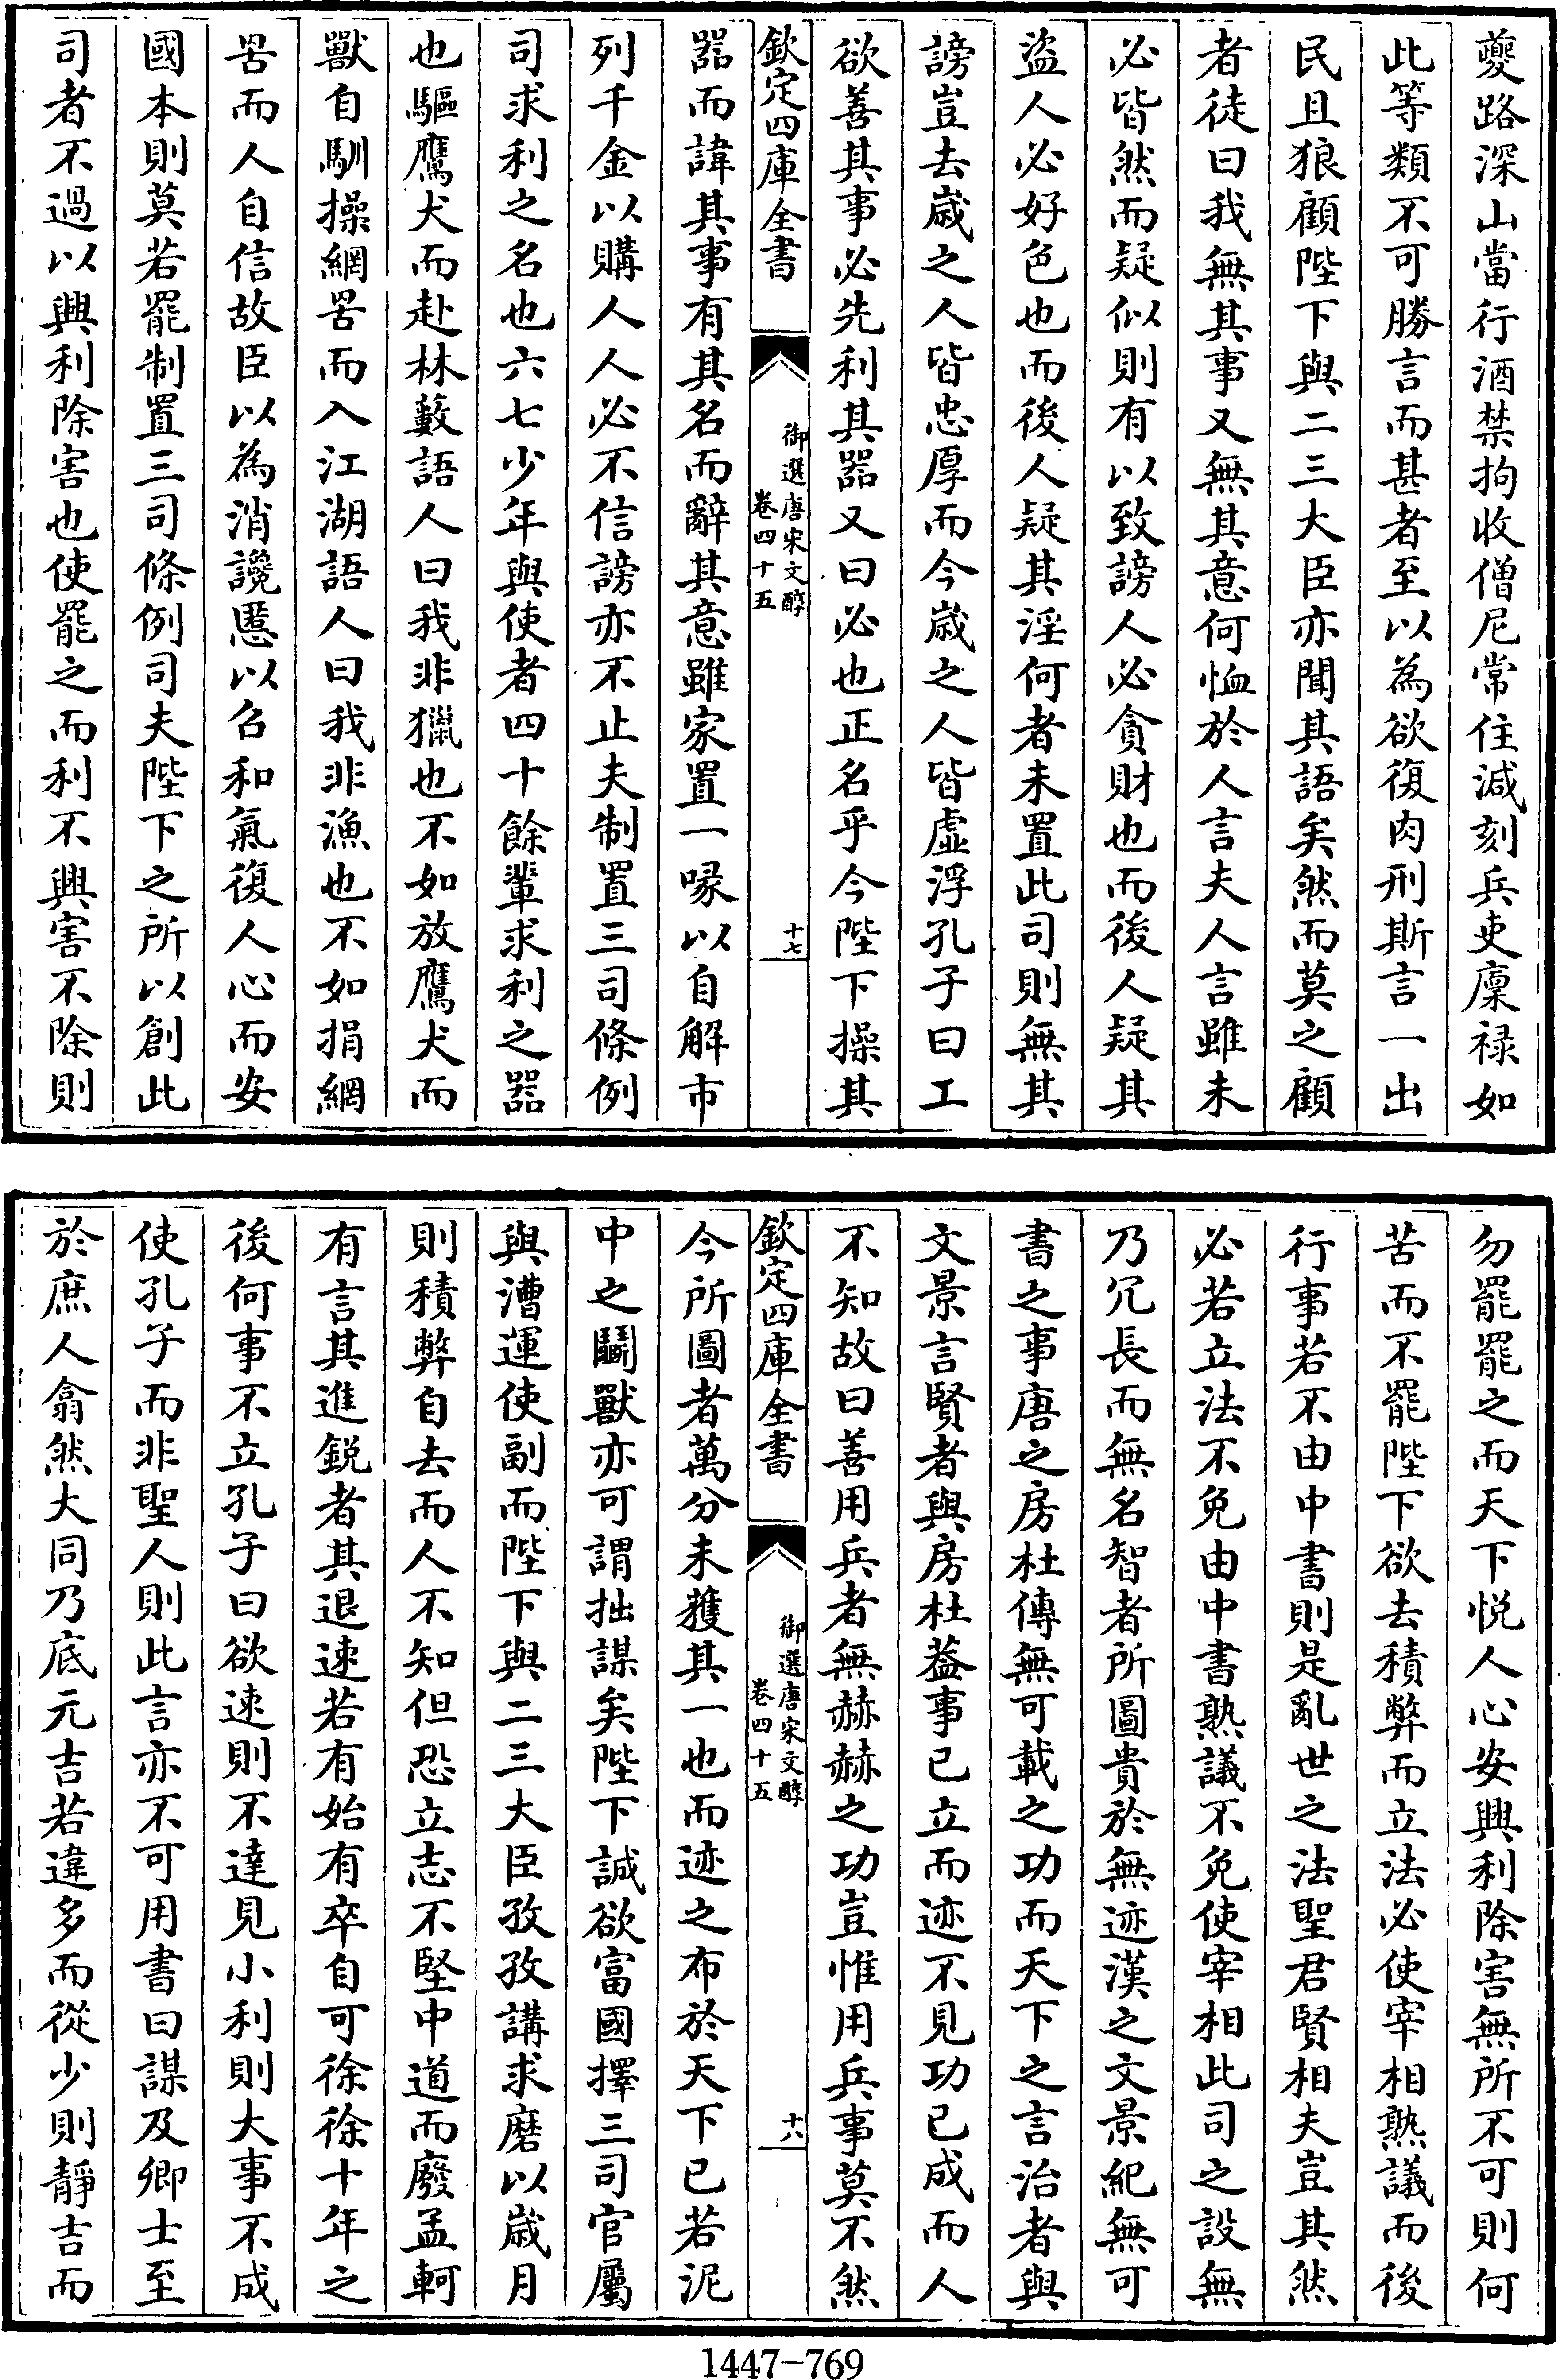 夔路深山當行酒禁拘收僧尼常住減刻兵吏廩禄如
此等類不可勝言而甚者至以為欲復肉刑斯言一出
民且狼顧陛下與二三大臣亦聞其語矣然而莫之顧
者徒曰我無其事又無其意何恤於人言夫人言雖未
必皆然而疑似則有以致謗人必貪財也而後人疑其
盜人必好色也而後人疑其淫何者未置此司則無其
謗豈去嵗之人皆忠厚而今嵗之人皆虚浮孔子曰工
欲善其事必先利其器又曰必也正名乎今陛下操其
欽定四庫全書
御選唐宋文醇
卷四十五
十七
器而諱其事有其名而辭其意雖家置一喙以自解市
列千金以購人人必不信謗亦不止夫制置三司條例
司求利之名也六七少年與使者四十餘輩求利之器
也驅鷹犬而赴林藪語人曰我非獵也不如放鷹犬而
獸自馴操網罟而入江湖語人曰我非漁也不如捐網
罟而人自信故臣以為消讒慝以召和氣復人心而安
國本則莫若罷制置三司條例司夫陛下之所以創此
司者不過以興利除害也使罷之而利不興害不除則
勿罷罷之而天下悦人心安興利除害無所不可則何
苦而不罷陛下欲去積弊而立法必使宰相熟議而後
行事若不由中書則是亂世之法聖君賢相夫豈其然
必若立法不免由中書熟議不免使宰相此司之設無
乃冗長而無名智者所圖貴於無迹漢之文景紀無可
書之事唐之房杜傳無可載之功而天下之言治者與
文景言賢者與房杜葢事已立而迹不見功已成而人
不知故曰善用兵者無赫赫之功豈惟用兵事莫不然
欽定四庫全書
御選唐宋文醇
卷四十五
十八
今所圖者萬分未獲其一也而迹之布於天下已若泥
中之鬭獸亦可謂拙謀矣陛下誠欲富國擇三司官屬
與漕運使副而陛下與二三大臣孜孜講求磨以嵗月
則積弊自去而人不知但恐立志不堅中道而廢孟軻
有言其進鋭者其退速若有始有卒自可徐徐十年之
後何事不立孔子曰欲速則不達見小利則大事不成
使孔子而非聖人則此言亦不可用書曰謀及卿士至
於庶人翕然大同乃底元吉若違多而從少則靜吉而
1447-769